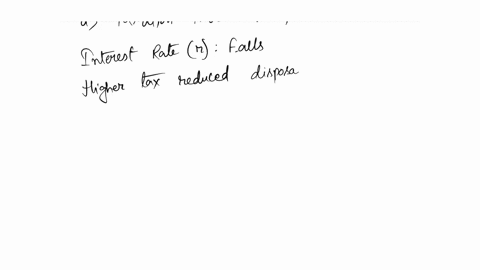 Interest Rate (r): Falls
Higher tax reduced disposa